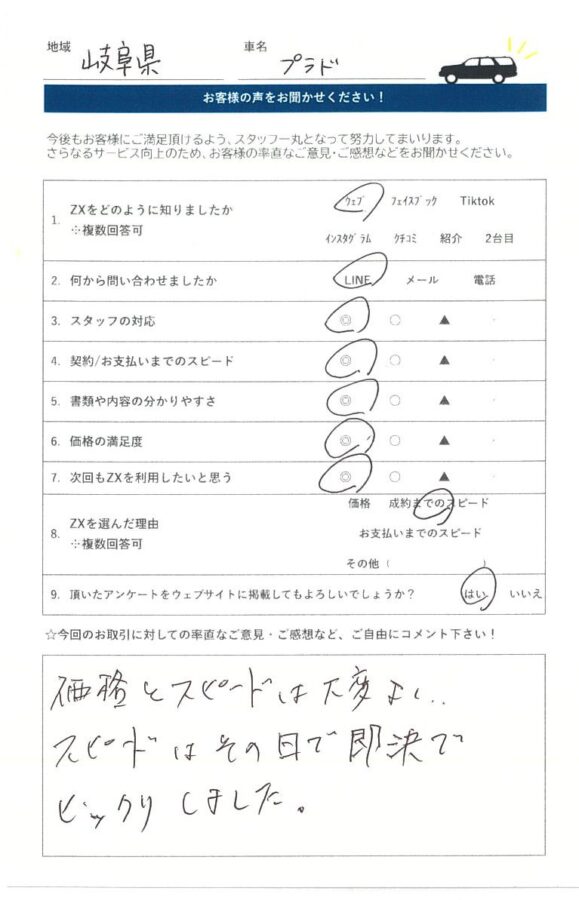 地域 岐阜県 車名 プラド
お客様の声をお聞かせください！
今後もお客様にご満足頂けるよう、スタッフ一丸となって努力してまいります。
さらなるサービス向上のため、お客様の率直なご意見・ご感想などをお聞かせください。
1. ZXをどのように知りましたか
※複数回答可
ｳｪﾌﾞ ﾌｪｲｽﾌﾞｯｸ Tiktok
ｲﾝｽﾀｸﾞﾗﾑ ｸﾁｺﾐ 紹介 2台目
2. 何から問い合わせましたか LINE メール 電話
3. スタッフの対応 ◎ ○ ▲
4. 契約/お支払いまでのスピード ◎ ○ ▲
5. 書類や内容の分かりやすさ ◎ ○ ▲
6. 価格の満足度 ◎ ○ ▲
7. 次回もZXを利用したいと思う ◎ ○ ▲
8. ZXを選んだ理由
※複数回答可
価格 成約までのスピード
お支払いまでのスピード
その他（ ）
9. 頂いたアンケートをウェブサイトに掲載してもよろしいでしょうか？ はい いいえ
☆今回のお取引に対しての率直なご意見・ご感想など、ご自由にコメント下さい！
価格とスピードは大変よい..
スピードはその日で即決で
ビックリしました。